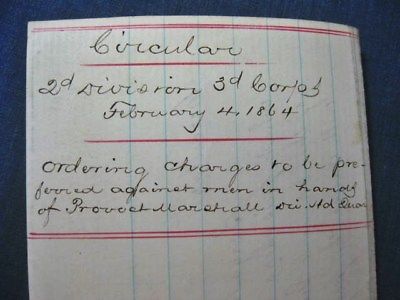 Circular
2d Division 3d Corps
February 4, 1864
ordering charges to be pre-
ferred against men in hands
of Provost Marshall Div. Hd Quar